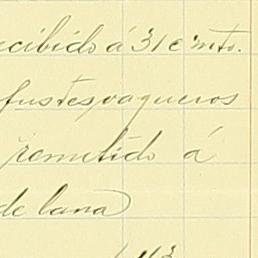 ecibido á 31 c mto.
fustes vaqueros
remitido á
de lana)